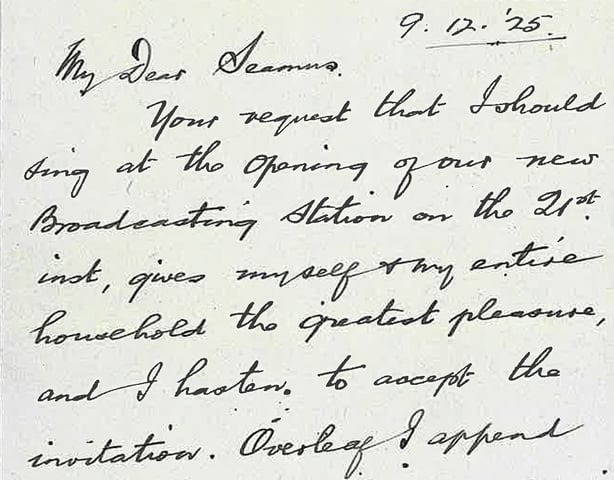 9. 12. '25.
My Dear Seamus.
Your request that I should
sing at the opening of our new
Broadcasting Station on the 21st.
inst, gives myself & my entire
household the greatest pleasure,
and I hasten. to accept the
invitation. Overleaf I append